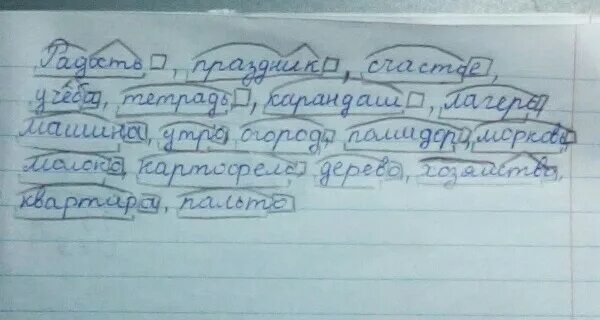 Радость, праздник, счастье,
учёба, тетрадь, карандаш, лагерь
машина, утро, огород, помидор, морковь
молоко, картофель, дерево, хозяйство,
квартира, пальто